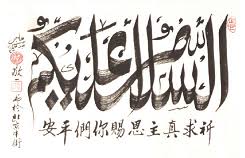 السلام عليكم
祈求真主恩賜你們平安